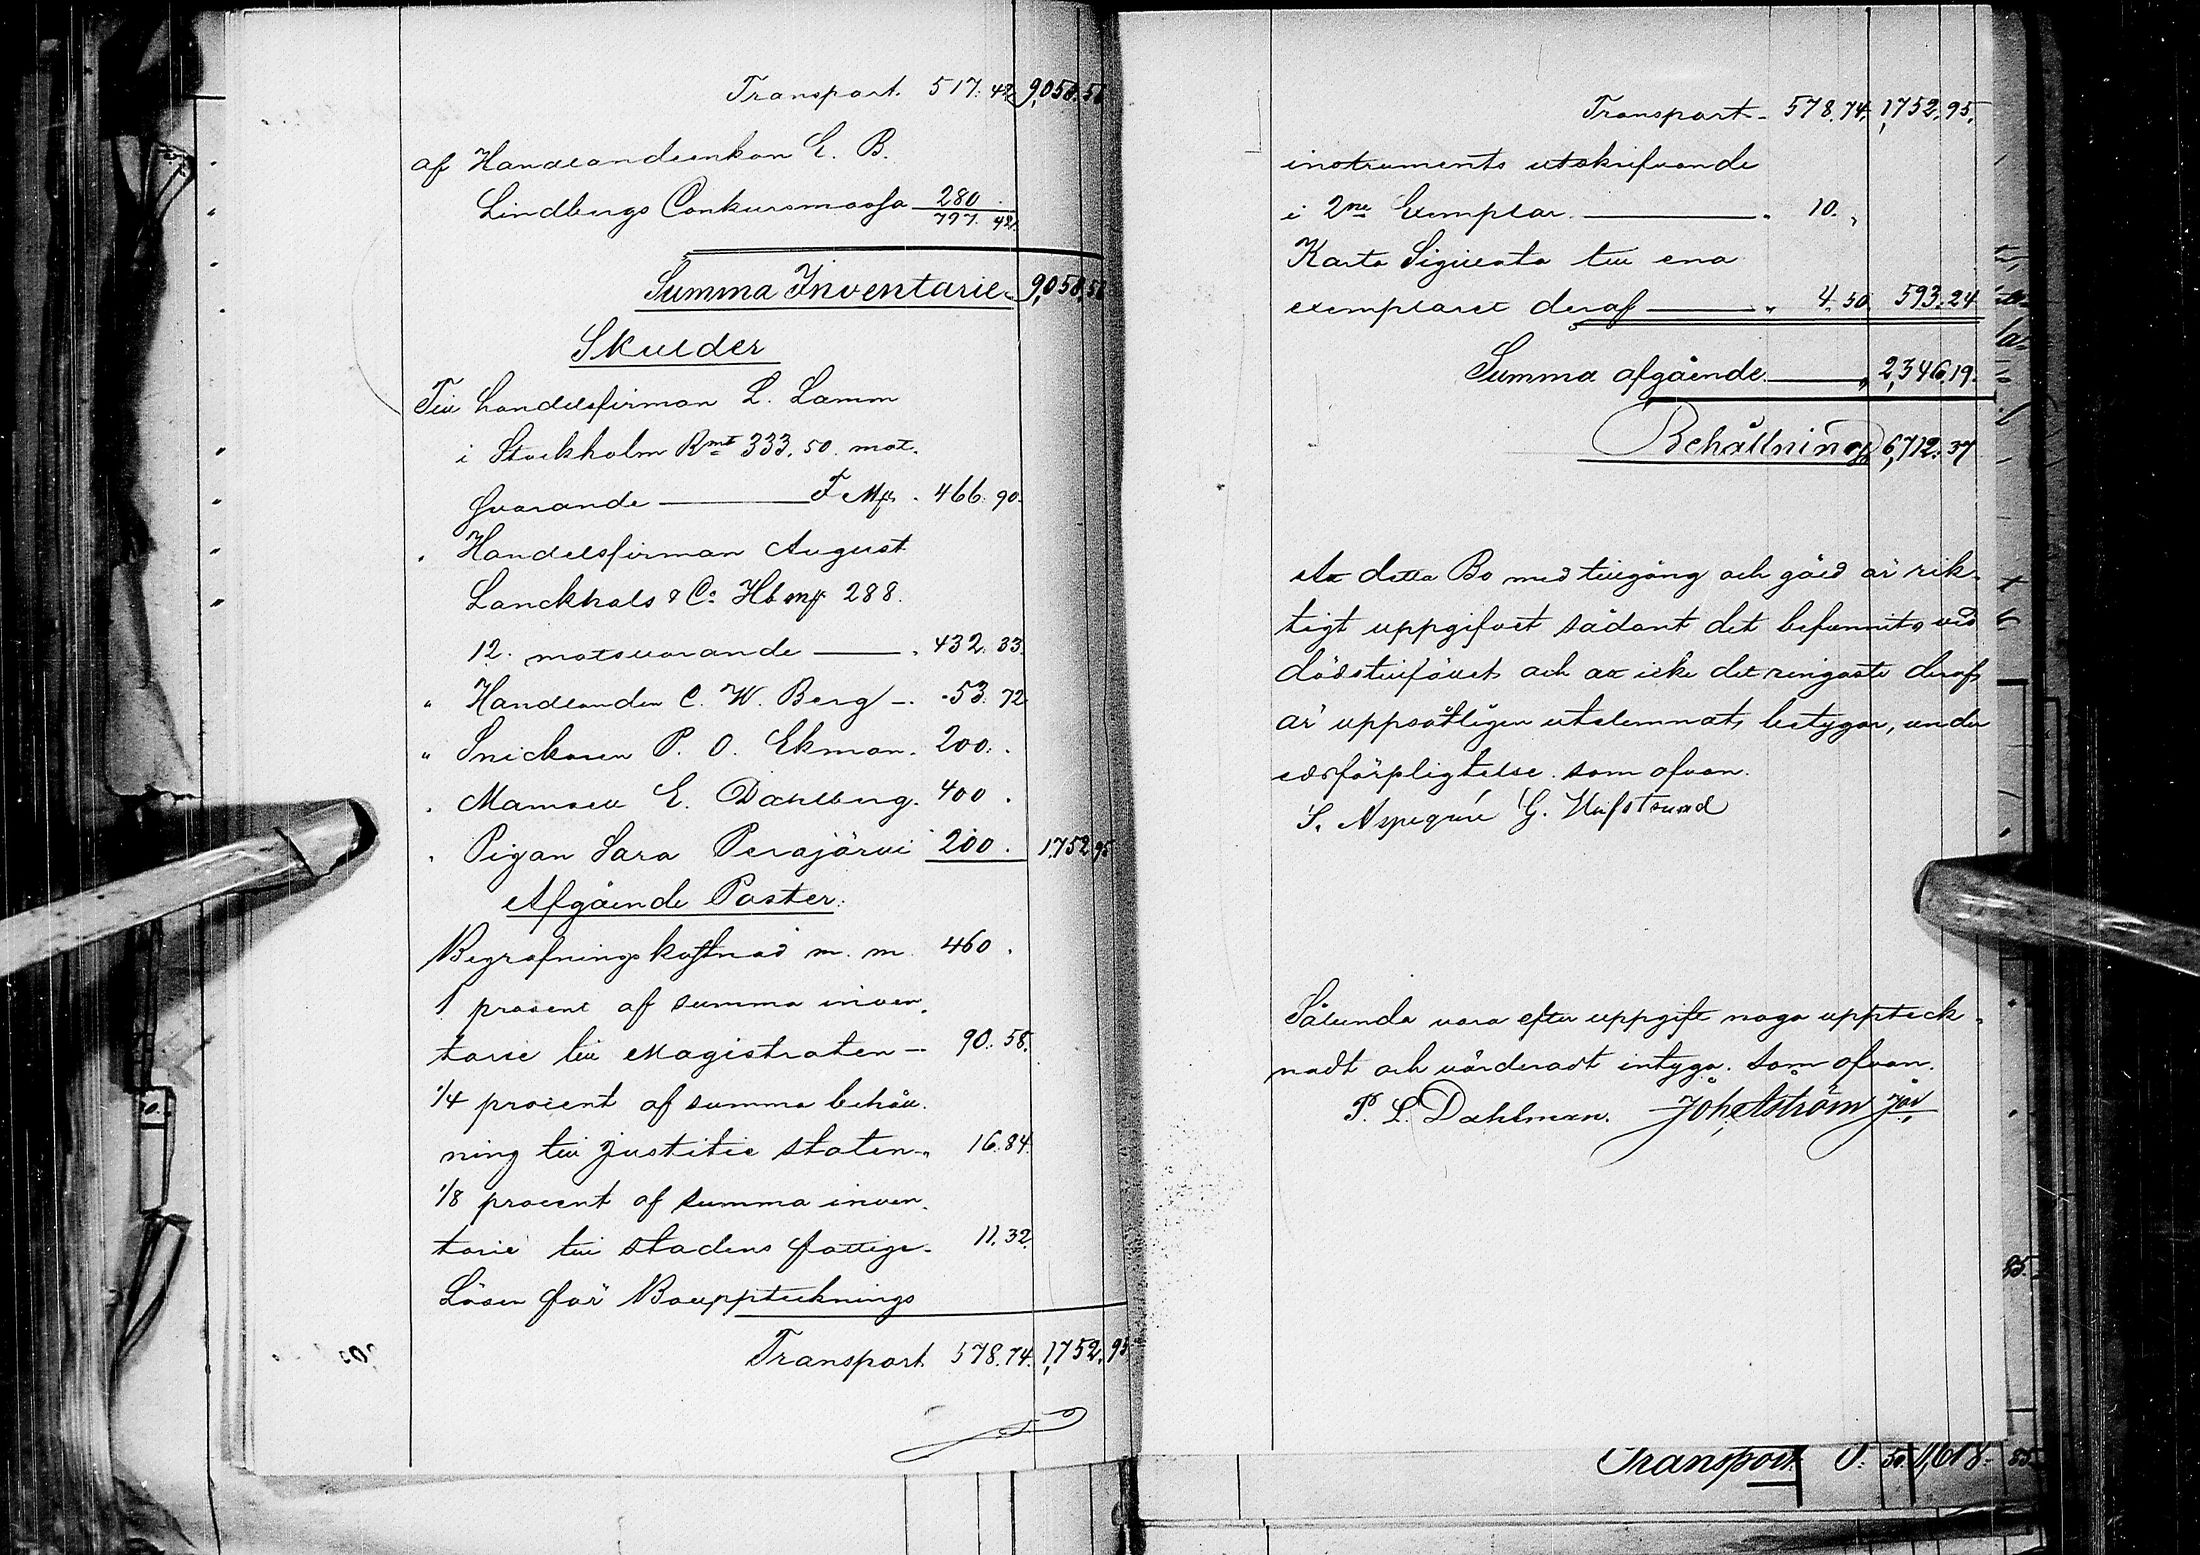 Transport. 517. 42 9,058. 56
af Handlandeenkan E. B.
Lindbergs Conkursmassa 280 .
797. 42.
Summa Inventarie. 9,058. 56
Skulder
Till handelsfirman L. Lamm
i Stockholm Rmt 333. 50. mot-
svarande F Mk . 466. 90.
. Handelsfirman August
Lanckhals & Co Hb mk 288.
12. motsvarande . 432. 33.
" Handlanden C. W. Berg . 53. 72
" Snickaren P. O. Ekman . 200. .
. Mamsell E. Dahlberg . 400 .
. Pigan Sara Perajärvi 200 . 1,752 95
Afgående Poster.
Begrafningskostnad m. m. 460 .
1 procent af summa inven-
tarie till Magistraten 90. 58.
1/4 procent af summa behåll-
ning till justitie staten " 16. 84.
1/8 procent af summa inven-
tarie till stadens fattige 11. 32.
Lösen för Bouppteknings
Transport 578. 74. 1,752. 95
Transport 578. 74. 1,752. 95.
instruments utskrifvande
i 2ne Exemplar " 10. "
Karta Sigillata till ena
exemplaret deraf " 4. 50. 593. 24
Summa afgående " 2,346. 19.
Behållning 6,712. 37
At detta Bo med tillgång och gäld är rik-
tigt uppgifvet sådant det befunnits vid
dödstillfället och att icke det ringaste deraf
är uppsåtligen utelemnat, betygar, under
edsförpligtelse som ofvan.
S. Aspegrén G. Hufstsund
Sålunda vara efter uppgift noga uppteck-
nadt och värderadt intyga. Som ofvan.
P. L. Dahlman. Joh. Åström Jör
Transport 50 1,618. 85